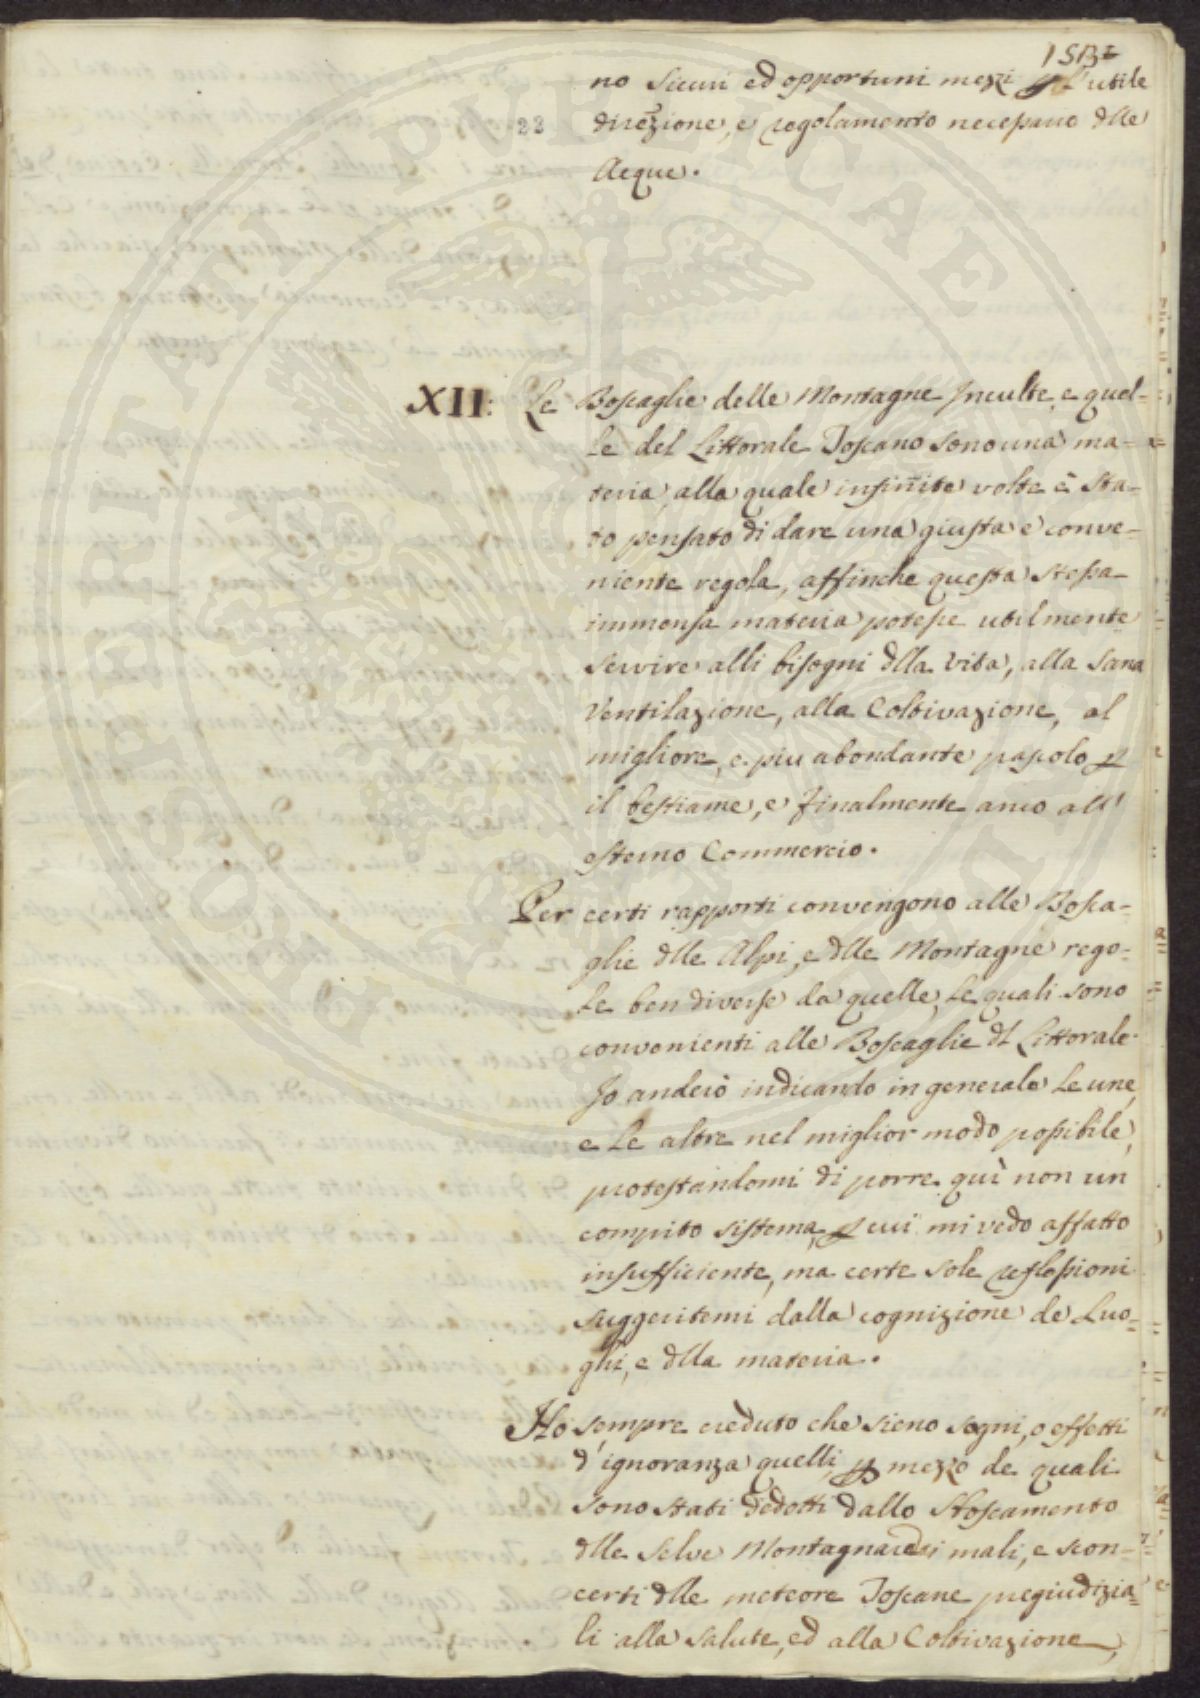 153
no sicuri ed opportuni mezzi p l'utile
direzione, e regolamento necessario dlle
Acque.
22
XII: Le Boscaglie delle Montagne Inculte, e quel-
le del Littorale Toscano sono una ma-
teria, alla quale infinite volte è sta-
to pensato di dare una giusta e conve-
niente regola, affinche questa stessa
immensa materia potesse utilmente
servire alli bisogni dlla Vita, alla Sana
Ventilazione, alla Coltivazione, al
migliore, e piu abondante pascolo p
il bestiame, e finalmente anco all'
esterno Commercio.
Per certi rapporti convengono alle Bosca-
glie dlle Alpi, e dlle Montagne rego-
le ben diverse da quelle, le quali sono
convenienti alle Boscaglie dl Littorale.
Io anderò indicando in generale le une,
e le altre nel miglior modo possibile,
protestandomi di porre quì non un
compito sistema, p cui mi vedo affatto
insufficiente, ma certe sole reflessioni
suggeritemi dalla cognizione de Luo-
ghi, e dlla materia.
Ho sempre creduto che sieno sogni, o effetti
d'ignoranza quelli, p mezzo de quali
sono stati dedotti dallo Sboscamento
dlle Selve Montagnardi mali, e scon-
certi dlle meteore Toscane pregiudizia-
li alla salute, ed alla Coltivazione,
PROSPERITATI PUBLICAE